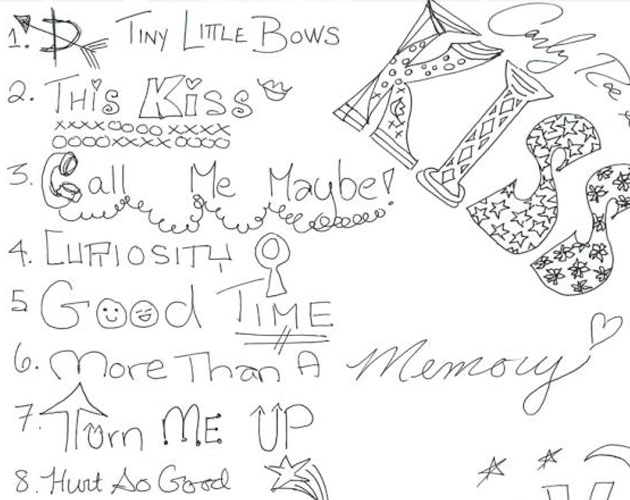 1. TINY LITTLE BOWS
2. THiS KiSS
xxxxxooooxxxx
ooooxxxxoooo
3. Call Me Maybe!
4. CURIOSITY
5 Good TIME
6. More Than A Memory
7. Turn ME UP
8. Hurt So Good
Carly Rae
KISS